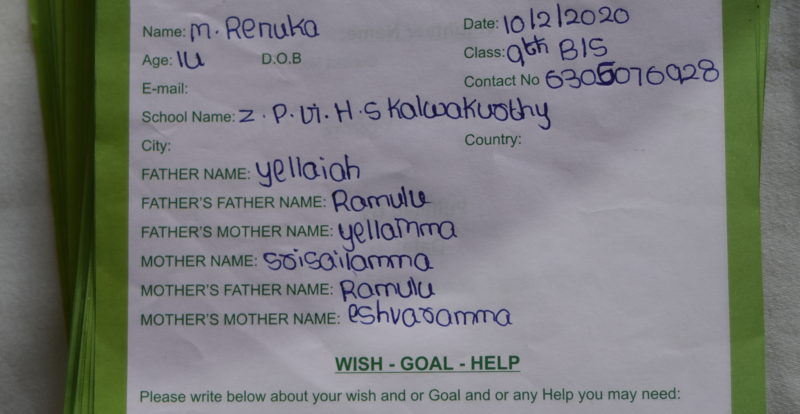 Name: M. Renuka Date: 10/2/2020
Age: 14 D.O.B Class: 9th B/S
E-mail: Contact No 6305076928
School Name: Z.P.Vi.H.S Kalwakurthy
City: Country:
FATHER NAME: yellaiah
FATHER'S FATHER NAME: Ramulu
FATHER'S MOTHER NAME: yellamma
MOTHER NAME: Srisailamma
MOTHER'S FATHER NAME: Ramulu
MOTHER'S MOTHER NAME: eshvaramma
WISH - GOAL - HELP
Please write below about your wish and or Goal and or any Help you may need: